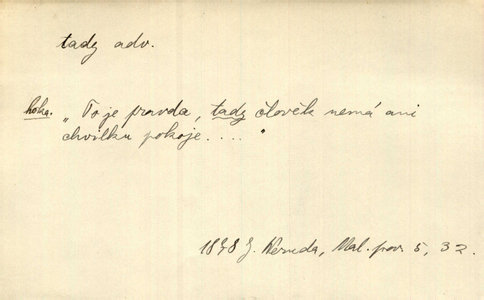 tady adv.
hoka. „To je pravda, tady člověk nemá ani
chvilku pokoje...."
1878 J. Neruda, Mal. pov. 5, 32.